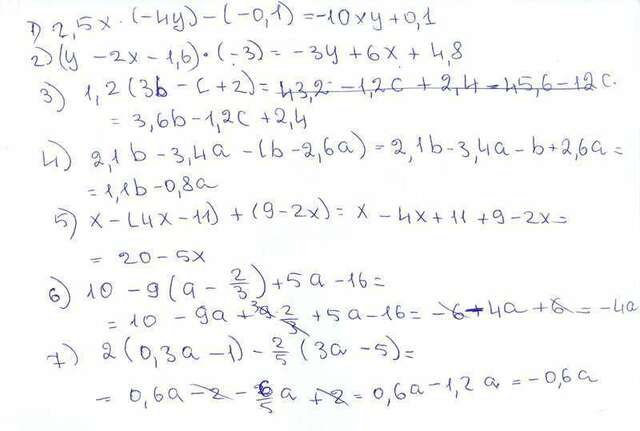 1) 2,5x · (-4y) - (-0,1) = -10xy + 0,1
2) (y - 2x - 1,6) · (-3) = -3y + 6x + 4,8
3) 1,2 (3b - c + 2) = 43,2 - 1,2c + 2,4 - 45,6 - 12c
= 3,6b - 1,2c + 2,4
4) 2,1b - 3,4a - (b - 2,6a) = 2,1b - 3,4a - b + 2,6a =
= 1,1b - 0,8a
5) x - (4x - 11) + (9 - 2x) = x - 4x + 11 + 9 - 2x =
= 20 - 5x
6) 10 - 9(a - 2/3) + 5a - 16 =
= 10 - 9a + 9 · 2/3 + 5a - 16 = -6 - 4a + 6 = -4a
7) 2(0,3a - 1) - 2/5 (3a - 5) =
= 0,6a - 2 - 6/5 a + 2 = 0,6a - 1,2a = -0,6a